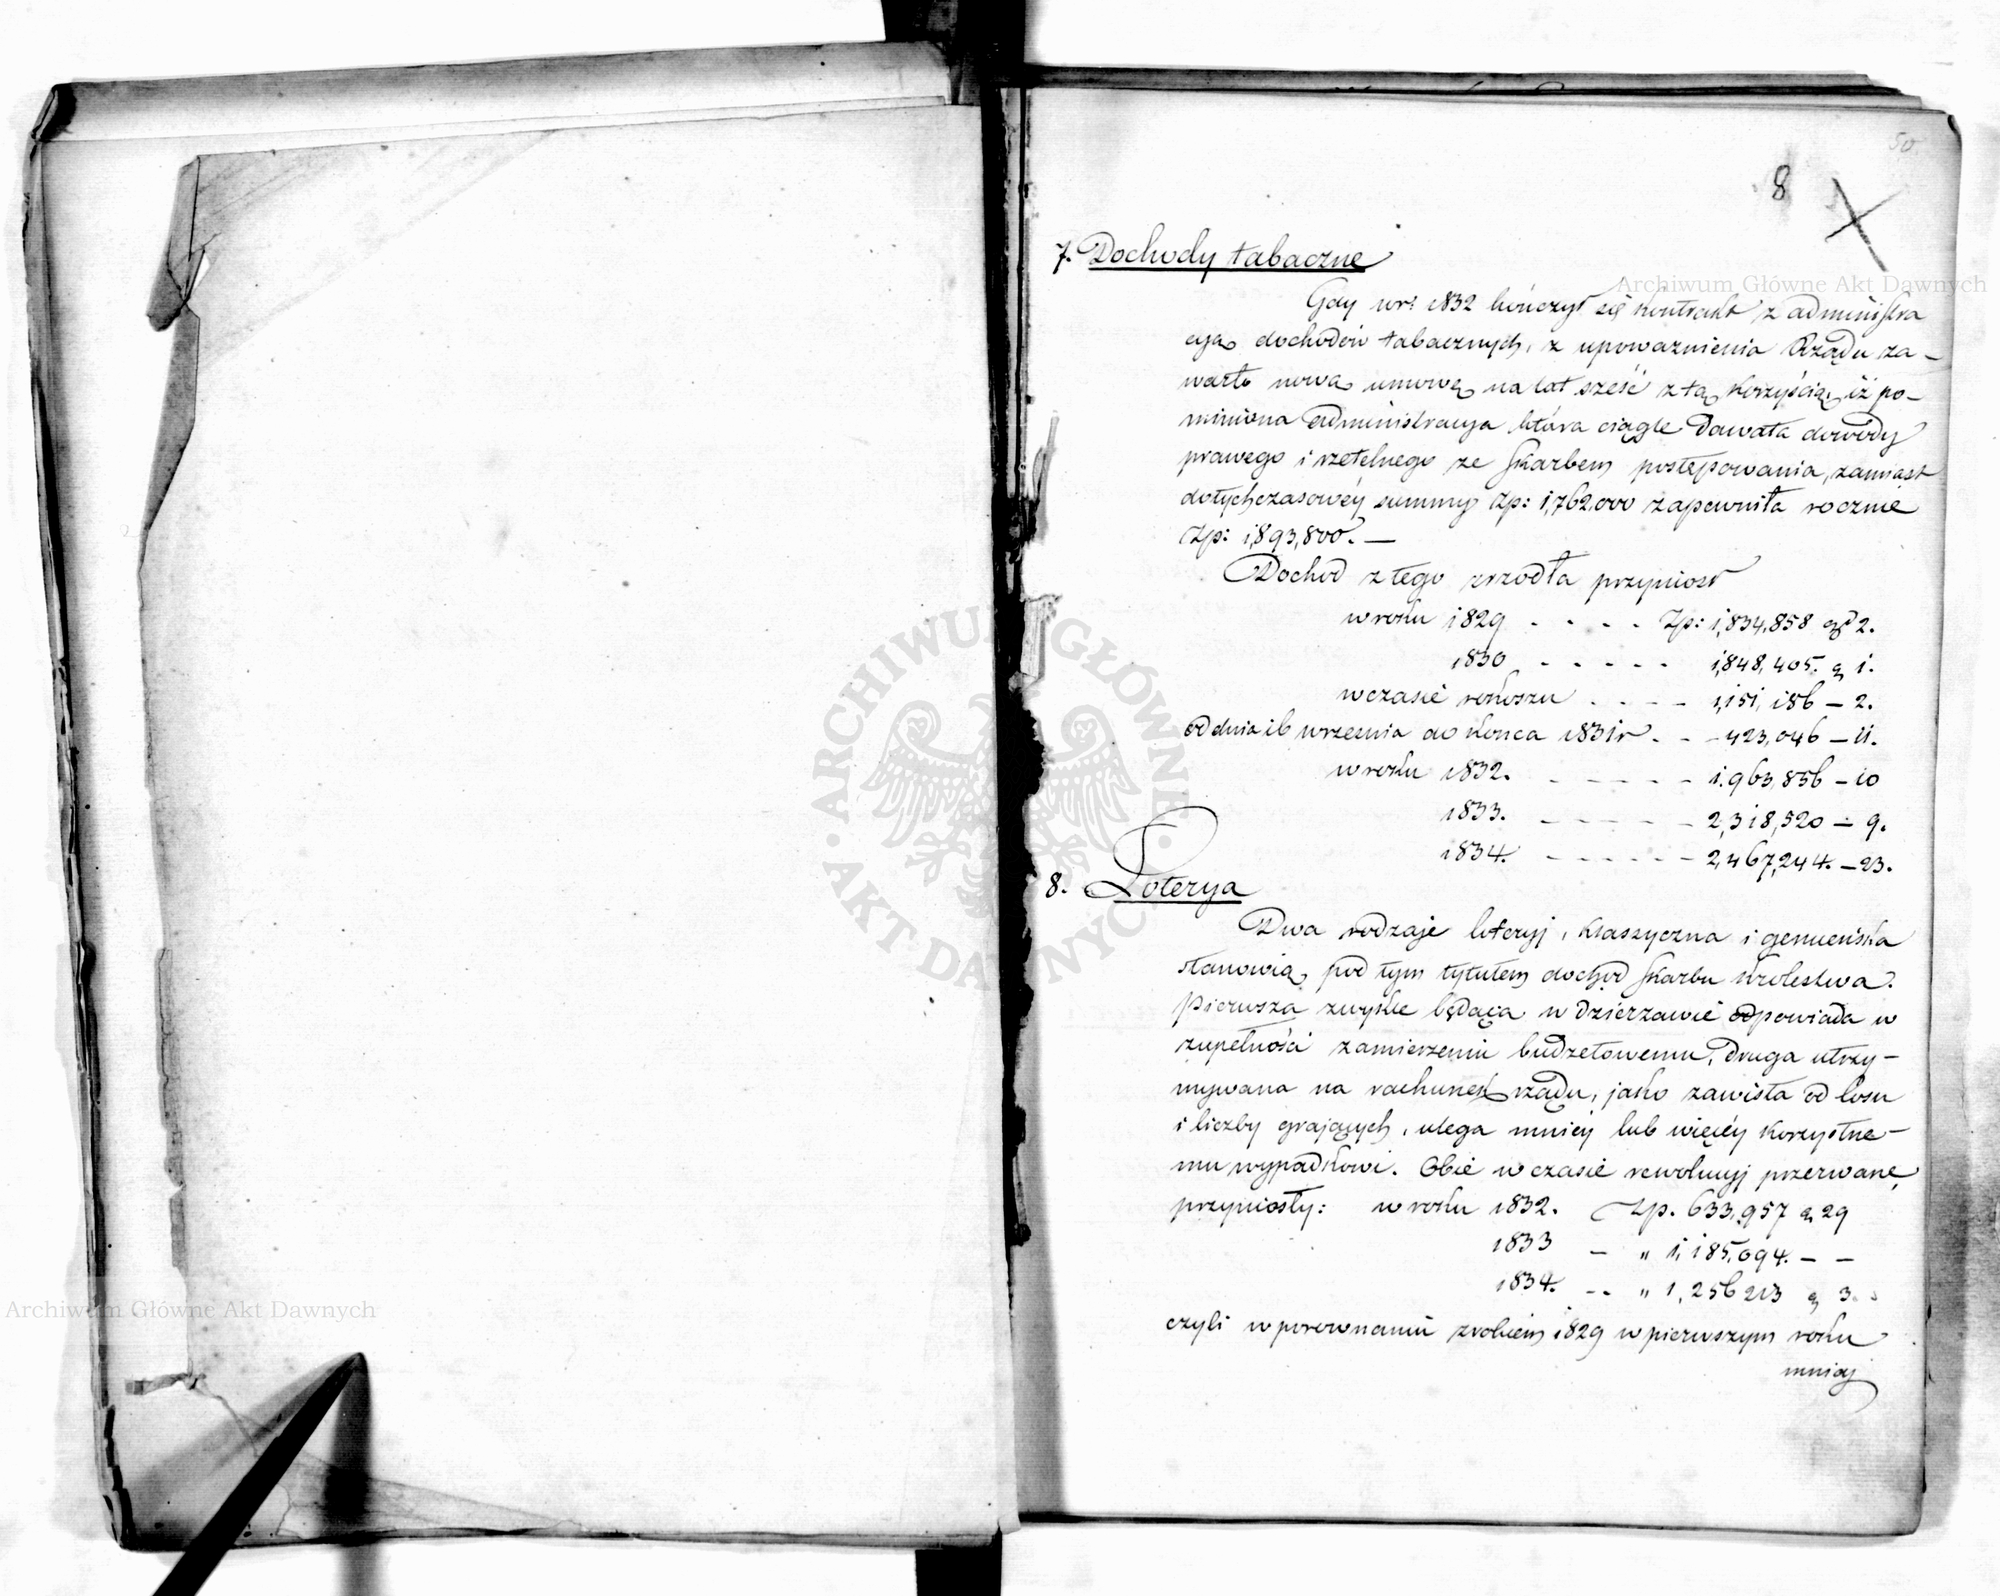 50
8
7. Dochody tabaczne
Gdy w r: 1832 kończył się kontrakt z administra
cyą dochodów tabacznych, z upoważnienia Rządu za-
warto nową umowę na lat sześć z tą korzyścią, iż po-
mimiona administracya która ciągle dawała dowody
prawego i rzetelnego ze Skarbem postępowania, zamiast
dotychczasowéy summy Zp: 1,762,000 zapewniła rocznie
Zp: 1,893,800. —
Dochod z tego zrzodła przyniosł
w roku 1829 - - - - Zp: 1,834,858 gr 2.
1830 - - - - - 1,848,405. g 1.
w czasie rokoszu - - - - 1,151,186 — 2.
od dnia 16 września do końca 1831 r. - - 423,046 — 11.
w roku 1832. - - - - - 1.963,856 — 10
1833. - - - - - 2,318,520 — 9.
1834. - - - - - 2,467,244. — 23.
8. Loterya
Dwa rodzaje loteryj, klassyczna i genueńska
stanowią pod tym tytułem dochod Skarbu Krolestwa.
Pierwsza zwykle będąca w dzierzawie odpowiada w
zupełności zamierzeniu budżetowemu, druga utrzy-
mywana na rachunek rządu, jako zawisła od losu
i liczby grających, ulega mniey lub więcéy korzystne-
mu wypadkowi. Obie w czasie rewolucyj przerwane,
przyniosły: w roku 1832. Zp. 633,957 g 29
1833 — " 1,185,094. — —
1834. -- " 1,256 213 g 3.
czyli w porownaniu z rokiem 1829 w pierwszym roku
mniey
Archiwum Główne Akt Dawnych
Archiwum Główne Akt Dawnych
ARCHIWUM GŁÓWNE AKT DAWNYCH